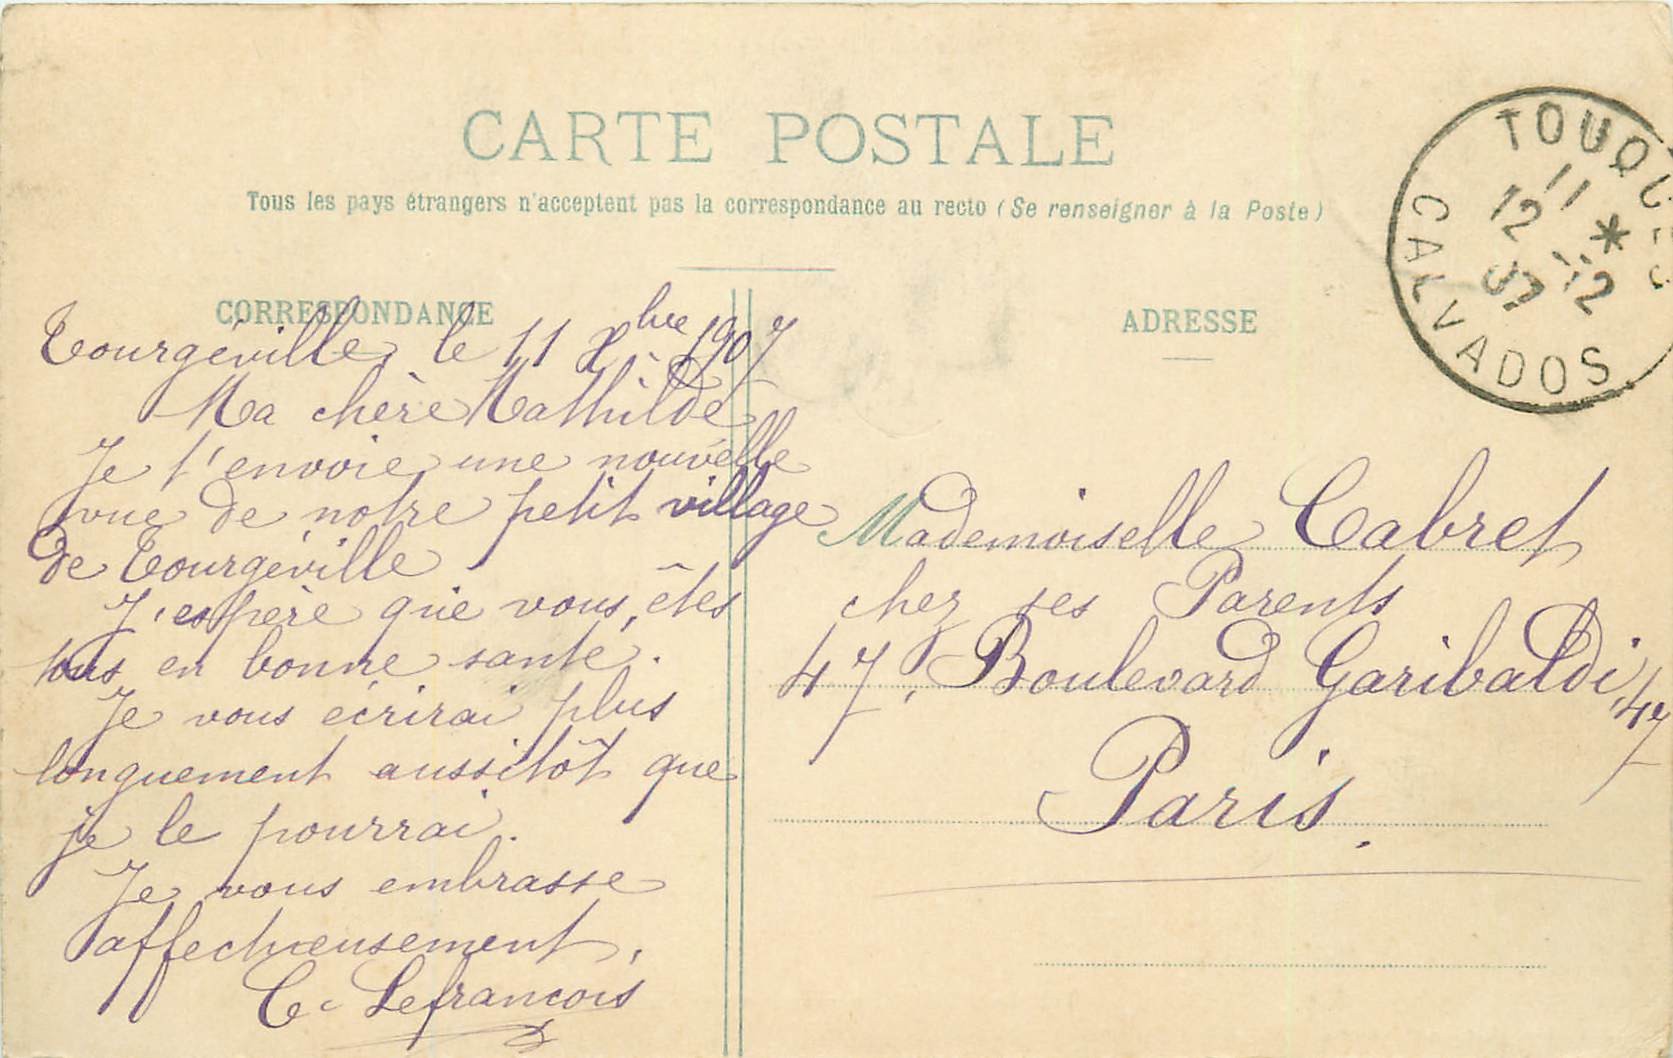 CARTE POSTALE
Tous les pays étrangers n'acceptent pas la correspondance au recto (Se renseigner à la Poste)
CORRESPONDANCE
Tourgéville, le 11 Xbre 1907
Ma chère Mathilde
Je t'envoie une nouvelle
vue de notre petit village
de Tourgéville
J'espère que vous êtes
tous en bonne santé.
Je vous écrirai plus
longuement aussitôt que
je le pourrai.
Je vous embrasse
affectueusement,
C. Lefrancois
ADRESSE
Mademoiselle Cabret
chez ses Parents
47, Boulevard Garibaldi, 47
Paris.
TOUQUES
11 *
12 12
07
CALVADOS